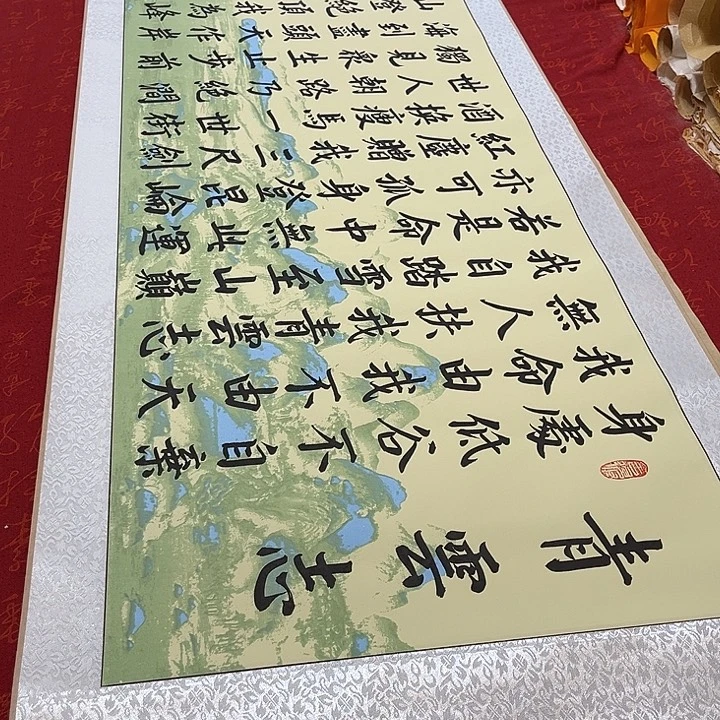 青雲志
身處低谷不自棄
我命由我不由天
無人扶我青雲志
我自踏雪至山巔
若是命中無此運
亦可孤身登昆崘
紅塵贈我三尺劍
酒换瘦馬一世街
世人朝路乃絕澗
獨見衆生止步前
海到盡頭天作岸
山登絕頂我為峰